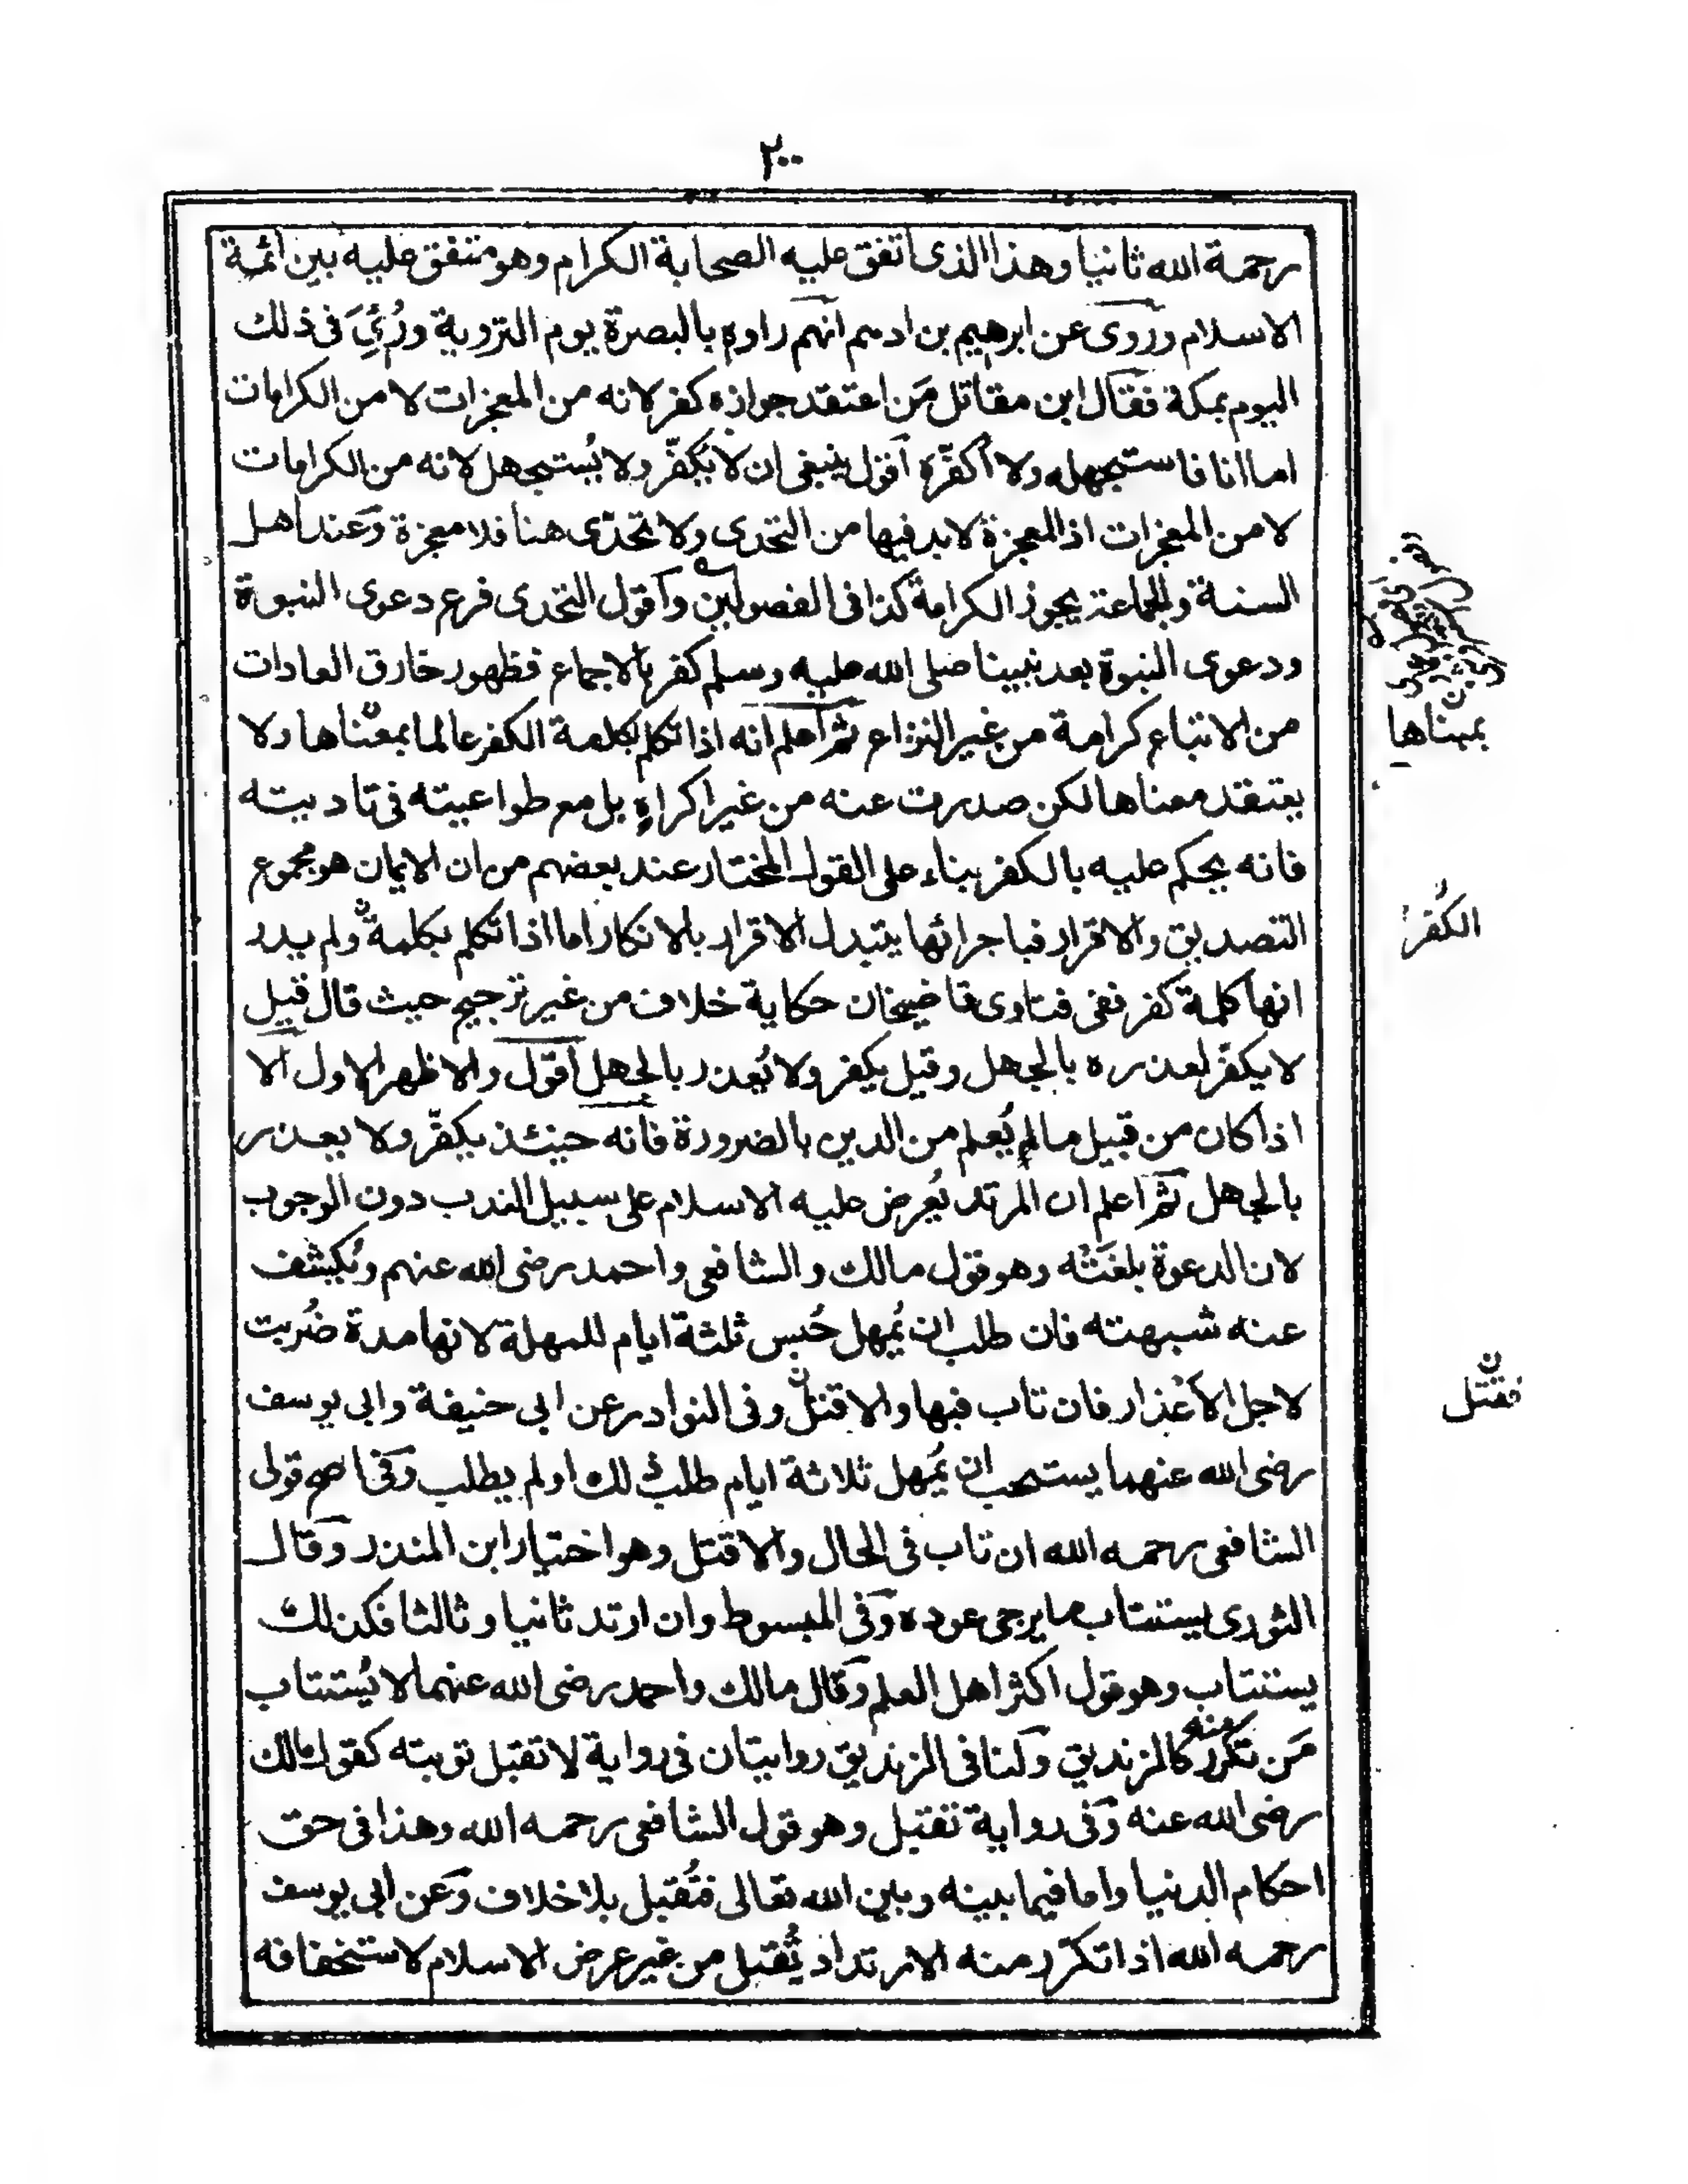 ٢٠٠
رحمة الله ثانيا وهذا الذى اتفق عليه الصحابة الكرام وهو متفق عليه بين ائمة
الاسلام وروى عن ابرهيم بن ادهم انهم راوه بالبصرة يوم التروية ورُئِيَ فى ذلك
اليوم بمكة فقال ابن مقاتل مَن اعتقد جوازه كفر لانه من المعجزات لا من الكرامات
اما انا فاستجهله ولا اُكفّره اقول ينبغى ان لا يكفّر ولا يُستجهل لانه من الكرامات
لا من المعجزات اذ المعجزة لا بد فيها من التحدى ولا تحدّى هنا فلا معجزة وعند اهل
السنة والجماعة يجوز الكرامة كذا فى الفصولين واقول التحدى فرع دعوى النبوة
ودعوى النبوة بعد نبينا صلى الله عليه وسلم كفر بالاجماع فظهور خارق العادات
من الاتباع كرامة من غير النزاع ثم اعلم انه اذا تكلم بكلمة الكفر عالما بمعناها ولا
بمبناها
يعتقد معناها لكن صدرت عنه من غير اكراهٍ بل مع طواعيته فى تاديته
فانه يحكم عليه بالكفر بناء على القول المختار عند بعضهم من ان الايمان هو مجموع
التصديق والاقرار فباجرائها يتبدل الاقرار بالانكار اما اذا تكلم بكلمة ولم يدر
الكُفر
انها كلمة كفر ففى فتاوى قاضيخان حكاية خلاف من غير ترجيح حيث قال قيل
لا يكفّر لعذره بالجهل وقيل يكفر ولا يُعذر بالجهل اقول والاظهر الاول الا
اذا كان من قبيل ما لم يُعلم من الدين بالضرورة فانه حينئذ يكفّر ولا يعذر
بالجهل ثم اعلم ان المرتد يُعرض عليه الاسلام على سبيل الندب دون الوجوب
لان الدعوة بلغَتْه وهو قول مالك والشافعى واحمد رضى الله عنهم وتُكشف
عنه شبهته فان طلب ان يُمهل حُبس ثلثة ايام للمهلة لانها مدة ضُربت
لاجل الاَعْذار فان تاب فبها والا قتل وفى النوادر عن ابى حنيفة وابى يوسف
فقتل
رضى الله عنهما يستحب ان يُمهل ثلاثة ايام طلب ذلك اولم يطلب وفى اصح قولى
الشافعى رحمه الله ان تاب فى الحال والا قتل وهو اختيار ابن المنذر وقال
الثورى يستتاب ما يرجى عوده وفى المبسوط وان ارتد ثانيا وثالثا فكذلك
يستتاب وهو قول اكثر اهل العلم وقال مالك واحمد رضى الله عنهما لا يُستتاب
مَن تكرر منه كالزنديق ولنا فى الزنديق روايتان فى رواية لا تقبل توبته كقول مالك
رضى الله عنه وفى رواية تقبل وهو قول الشافعى رحمه الله وهذا فى حق
احكام الدنيا واما فيما بينه وبين الله تعالى فتُقبل بلا خلاف وعن ابى يوسف
رحمه الله اذا تكرّر منه الارتداد يُقتل من غير عرض الاسلام لاستخفافه